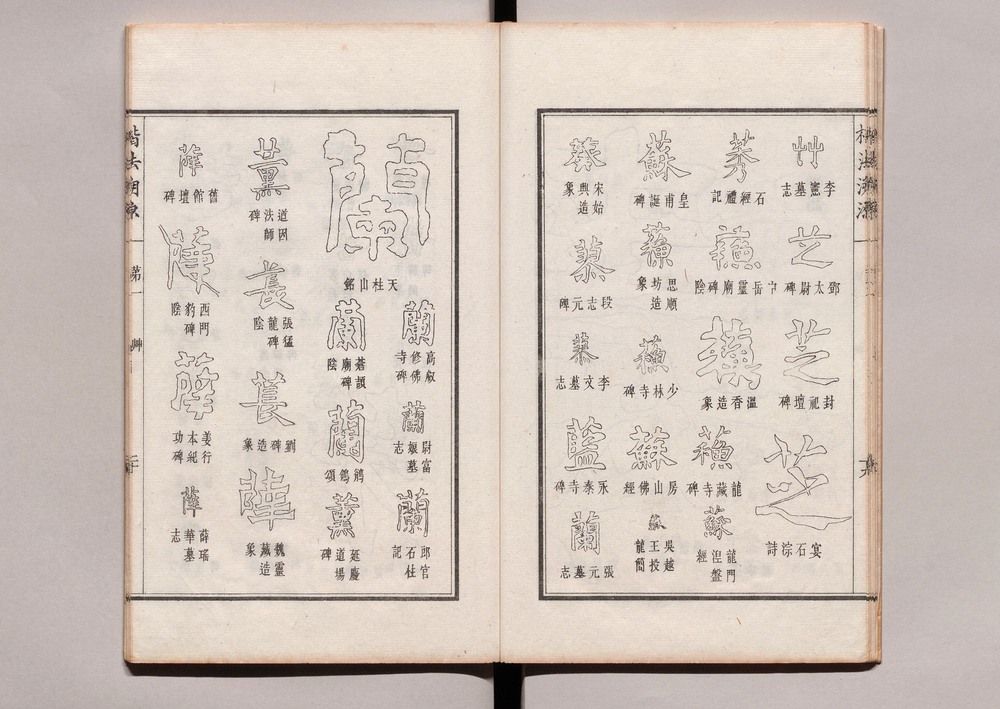 楷法溯源
艸
李憲墓志
芝
鄧太尉碑
芝
封祀壇碑
芝
宴石淙詩
莠
石經禮記
蘓
中岳靈廟碑陰
蘓
溫香造象
蘓
龍藏寺碑
蘇
龍門涅盤經
蘇
皇甫誕碑
蘓
思順坊造象
蘓
少林寺碑
蘇
房山佛經
蘇
吳越王投龍簡
葵
宋始興造象
段志元碑
李文墓志
藍
永泰寺碑
蘭
張元墓志
蘭
天柱山銘
蘭
高叡修佛寺碑
蘭
尉富娘墓志
蘭
郎官石柱記
蘭
蒼頡廟碑陰
蘭
鶺鴒頌
薰
延慶道場碑
薰
道因法師碑
萇
張猛龍碑陰
萇
劉碑造象
魏靈藏造象
薛
舊館壇碑
薛
西門豹碑陰
薛
姜行本紀功碑
薛
薛瑤華墓志
楷法溯源
第一
艸
二十